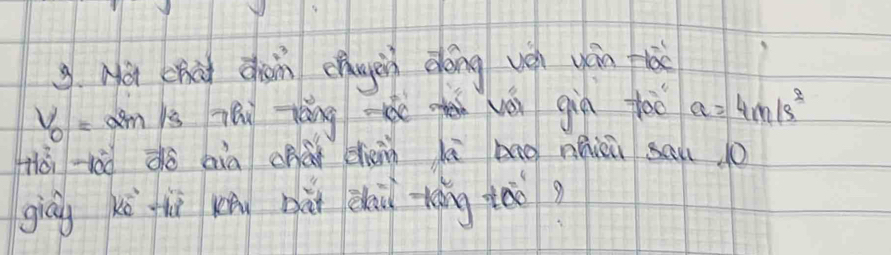 3. Một chất điểm chuyển động với vận tốc
V₀ = 2m/s thì tăng tốc với gia tốc a = 4m/s²
Hỏi tốc độ của chất điểm là bao nhiêu sau 10
giây kể từ khi bắt đầu tăng tốc ?